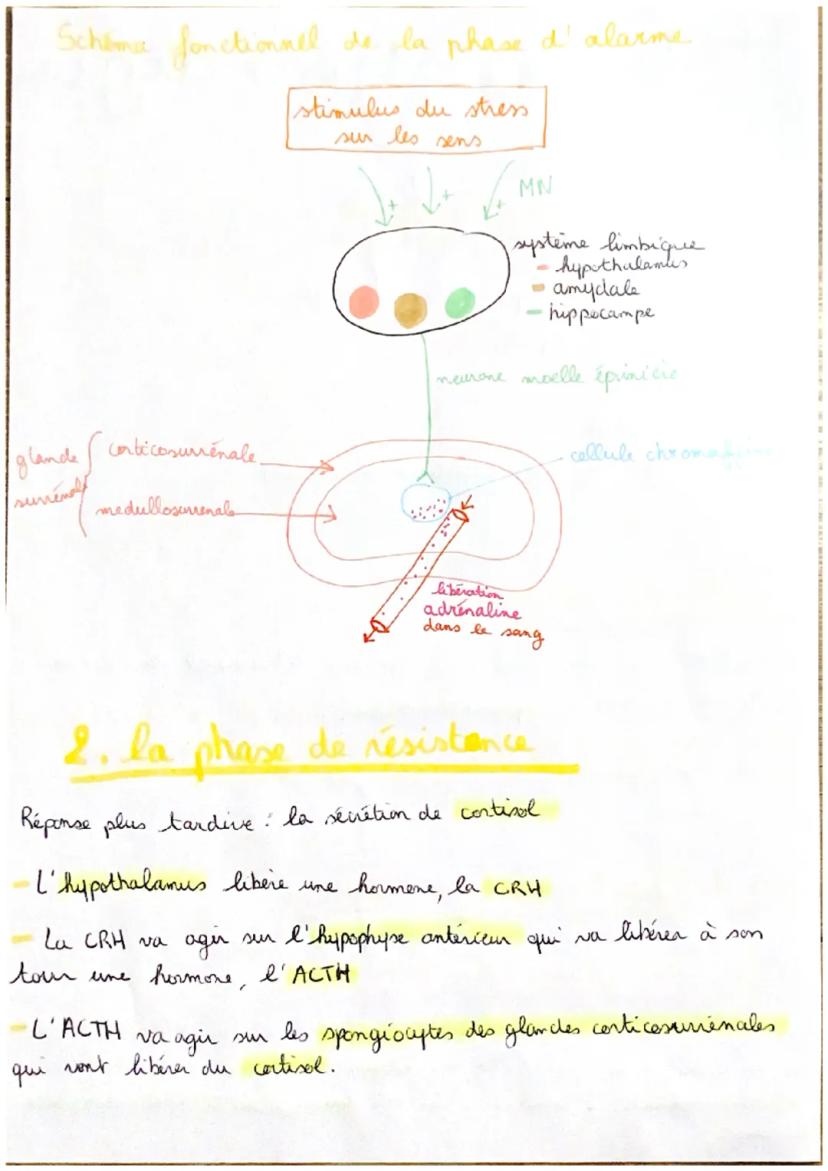 Schéma fonctionnel de la phase d'alarme
stimulus du stress
sur les sens
+ + + MN
système limbique
- hypothalamus
- amydale
- hippocampe
neurone moelle épinicie
glande
surrénale
corticosurrénale
medullosurrenale
cellule chromaffine
libération
adrénaline
dans le sang
2. la phase de résistance
Réponse plus tardive : la sécrétion de cortisol
- L'hypothalamus libère une hormone, la CRH
- La CRH va agir sur l'hypophyse antérieur qui va libérer à son
tour une hormone, l'ACTH
- L'ACTH va agir sur les spongiocytes des glandes corticosurrénales
qui vont libérer du cortisol.